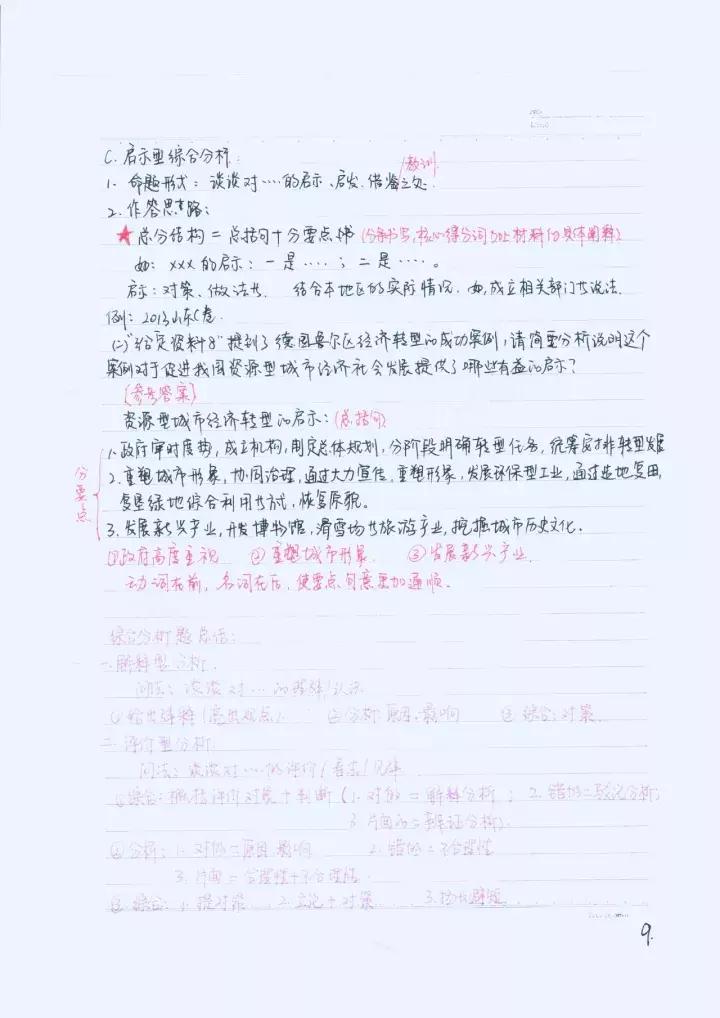 C. 启示型综合分析:
1. 命题形式:谈谈对……的启示、启发、借鉴之处. /教训
2. 作答思路:
★ 总分结构 = 总括句 + 分要点 (分条书写,核心得分词 材料 具体阐释)
如:xxx的启示:一是……;二是……。
启示:对策、做法 结合本地区的实际情况. 如,成立相关部门 说法.
例:2013山东C卷.
(二)"给定资料8"提到了德国鲁尔区经济转型的成功案例,请简要分析说明这个
案例对于促进我国资源型城市经济社会发展提供了哪些有益的启示?
[参考答案]
资源型城市经济转型的启示:(总括句)
分要点
1. 政府审时度势,成立机构,制定总体规划,分阶段明确转型任务,统筹安排转型发展
2. 重塑城市形象,协同治理,通过大力宣传,重塑形象,发展环保型工业,通过造地复田,
复垦绿地综合利用 方式,恢复原貌。
3. 发展新兴产业,开发博物馆,滑雪场 旅游产业,挖掘城市历史文化.
①政府高度重视 ②重塑城市形象 ③发展新兴产业.
动词在前,名词在后,使要点句意更加通顺。
综合分析题总结:
一. 解释型分析.
问法:谈谈对…的理解/认识
①给出解释(亮出观点) ②分析:原因、影响 ③综合:对策.
二. 评价型分析
问法:谈谈对……的评价/看法/见解
①综合:概括评价对象+判断(1. 对的=解释分析; 2. 错的=驳论分析;
3. 片面的=辩证分析).
②分析:1. 对的=原因、影响 2. 错的=不合理性
3. 片面=合理性+不合理性.
③综合:1. 提对策 2. 立论+对策 3.
9.